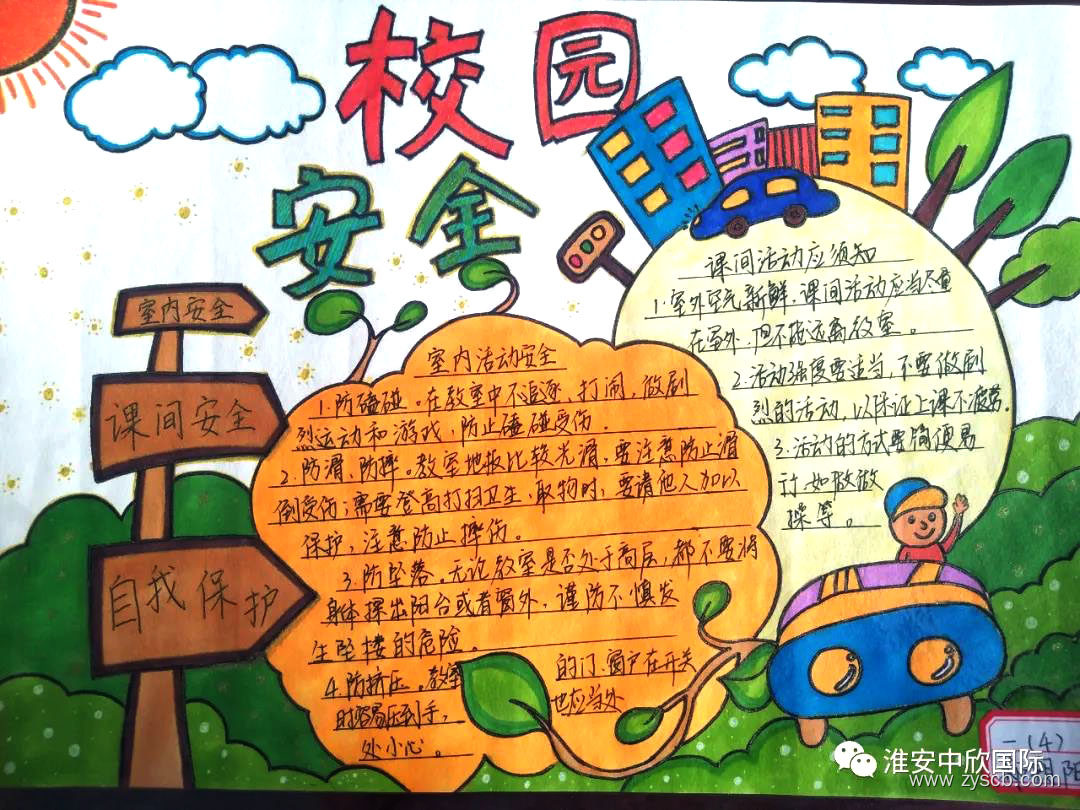 校园
安全
室内安全
课间安全
自我保护
室内活动安全
1.防磕碰。在教室中不追逐、打闹,做剧
烈运动和游戏,防止磕碰受伤。
2.防滑、防摔。教室地板比较光滑,要注意防止滑
倒受伤;需要登高打扫卫生、取物时,要请他人加以
保护,注意防止摔伤。
3.防坠落。无论教室是否处于高层,都不要将
身体探出阳台或者窗外,谨防不慎发
生坠楼的危险。
4.防挤压。教室
的门、窗户在开关
时容易压到手,
也应当处
处小心。
课间活动应须知
1.室外空气新鲜,课间活动应当尽量
在室外,但不能远离教室。
2.活动强度要适当,不要做剧
烈的活动,以保证上课不疲劳。
3.活动的方式要简便易
行,如做做
操等。
一(4)
阳
淮安中欣国际
www.zyscb.com